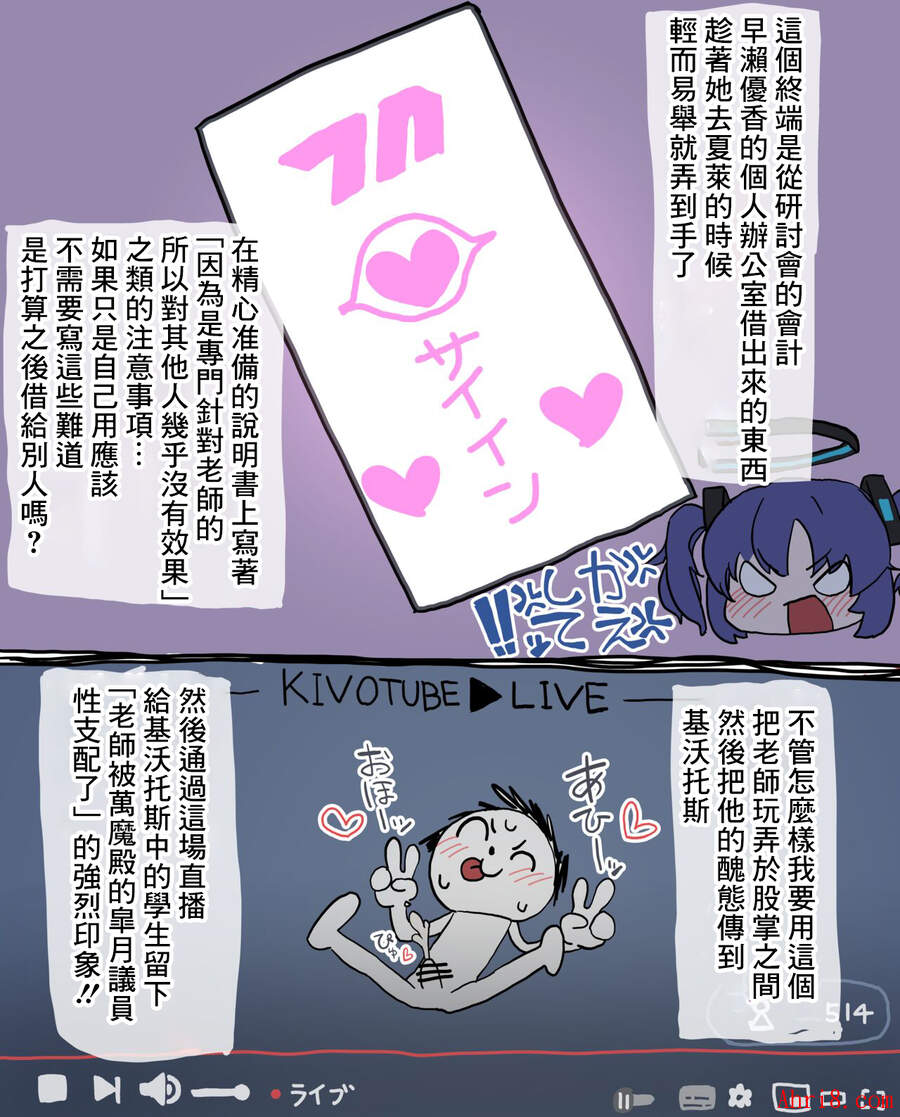 這個終端是從研討會的會計
早瀨優香的個人辦公室借出來的東西
趁著她去夏萊的時候
輕而易舉就弄到手了
サイイン
在精心准備的說明書上寫著
「因為是專門針對老師的
所以對其他人幾乎沒有效果」
之類的注意事項…
如果只是自己用應該
不需要寫這些難道
是打算之後借給別人嗎?
かえ
して!!
KIVOTUBE▶LIVE
不管怎麼樣我要用這個
把老師玩弄於股掌之間
然後把他的醜態傳到
基沃托斯
あひーッ
おほーッ
ぴゅ
然後通過這場直播
給基沃托斯中的學生留下
「老師被萬魔殿的皐月議員
性支配了」的強烈印象!!
514
ライブ
Ahri8.com